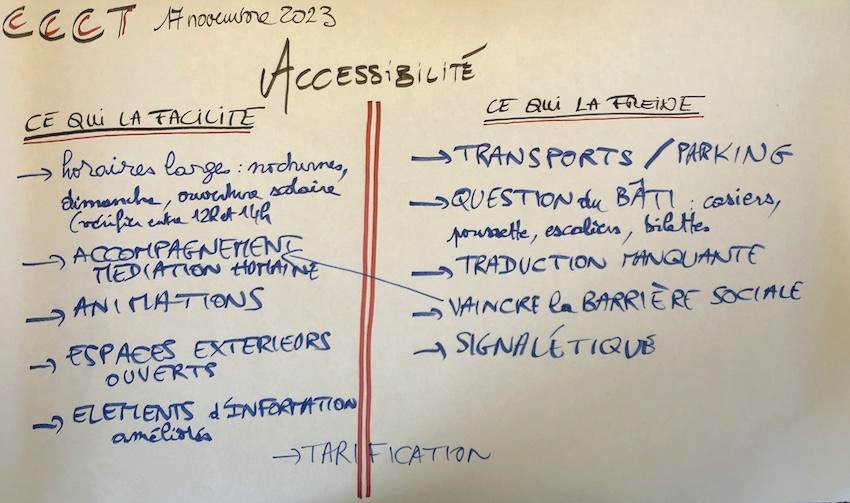 CCCT 17 novembre 2023
ACCESSIBILITÉ
CE QUI LA FACILITE
→ horaires large : nocturnes,
dimanche, ouverture scolaire
(vérifier entre 12h et 14h
→ ACCOMPAGNEMENT
MEDIATION HUMAINE
→ ANIMATIONS
→ ESPACES EXTERIEURS
OUVERTS
→ ELEMENTS d'INFORMATION
améliorés
CE QUI LA FREINE
→ TRANSPORTS / PARKING
→ QUESTION du BÂTI : casiers,
poussette, escaliers,
→ TRADUCTION MANQUANTE
→ VAINCRE la BARRIÈRE SOCIALE
→ SIGNALÉTIQUE
→ TARIFICATION